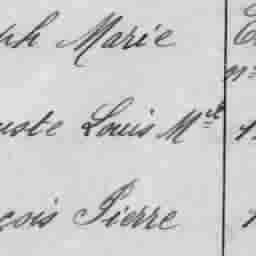 ph Marie
uste Louis Mel
çois Pierre